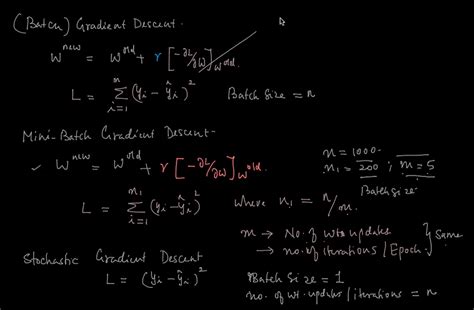 (Batch) Gradient Descent.
W^new = W^old + r [-∂L/∂W]_{W^old}.
L = Σ_{i=1}^{n} (y_i - ŷ_i)^2 Batch Size = n
Mini-Batch Gradient Descent-
✓ W^new = W^old + r [-∂L/∂W]_{W^old}.
n = 1000
n_1 = 200 ; m = 5
Batch size
L = Σ_{i=1}^{n_1} (y_i - ŷ_i)^2 where n_1 = n/m.
m → No. of wts updates
→ no. of iterations / Epoch } Same
Stochastic Gradient Descent
L = (y_i - ŷ_i)^2
Batch Size = 1
no. of wt. updates / iterations = n